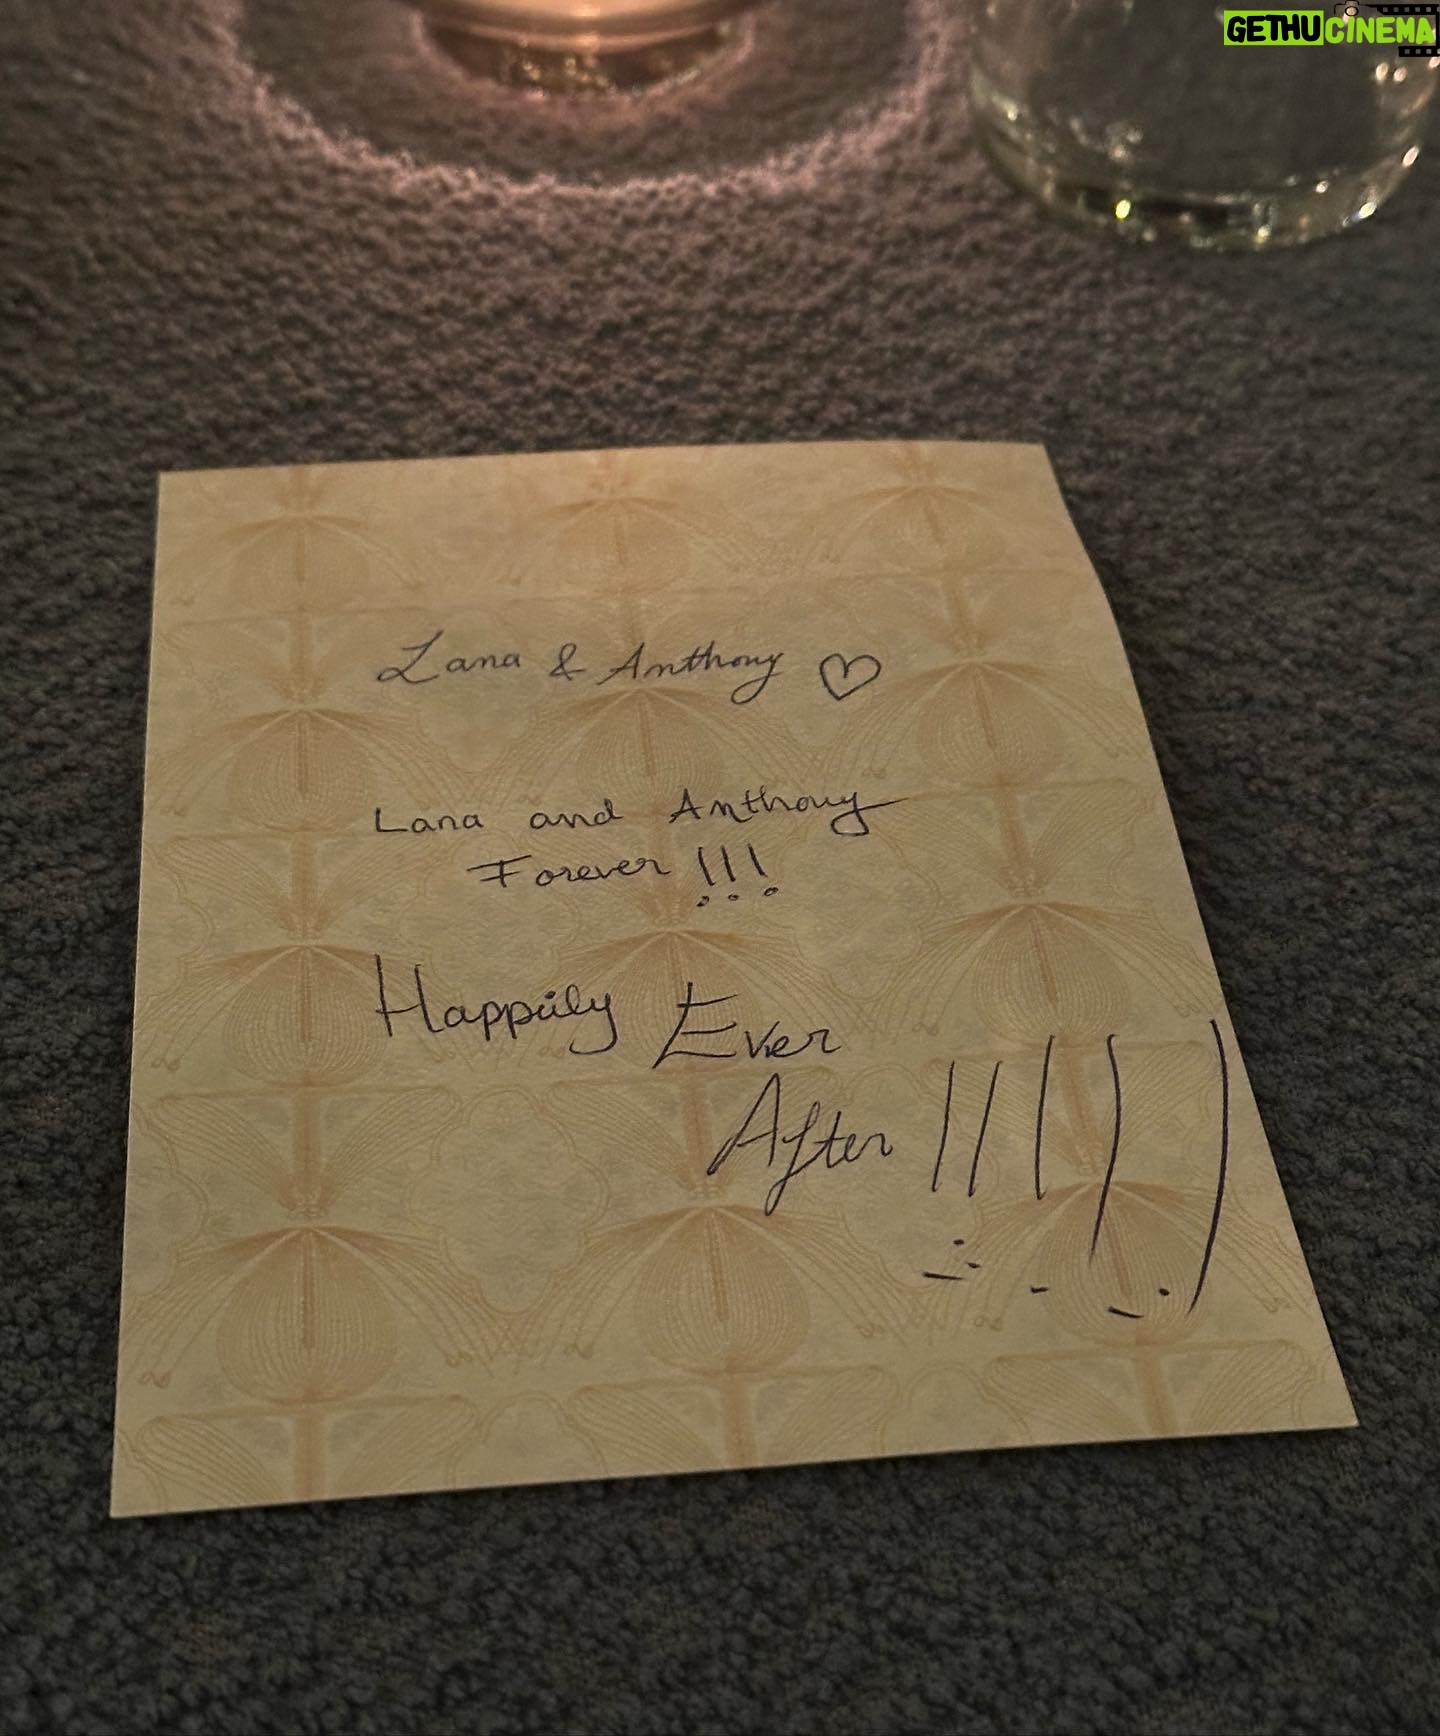 GETHUCINEMA
Lana & Anthony ♡
Lana and Anthony
Forever !!!
Happily Ever
After !!!!!